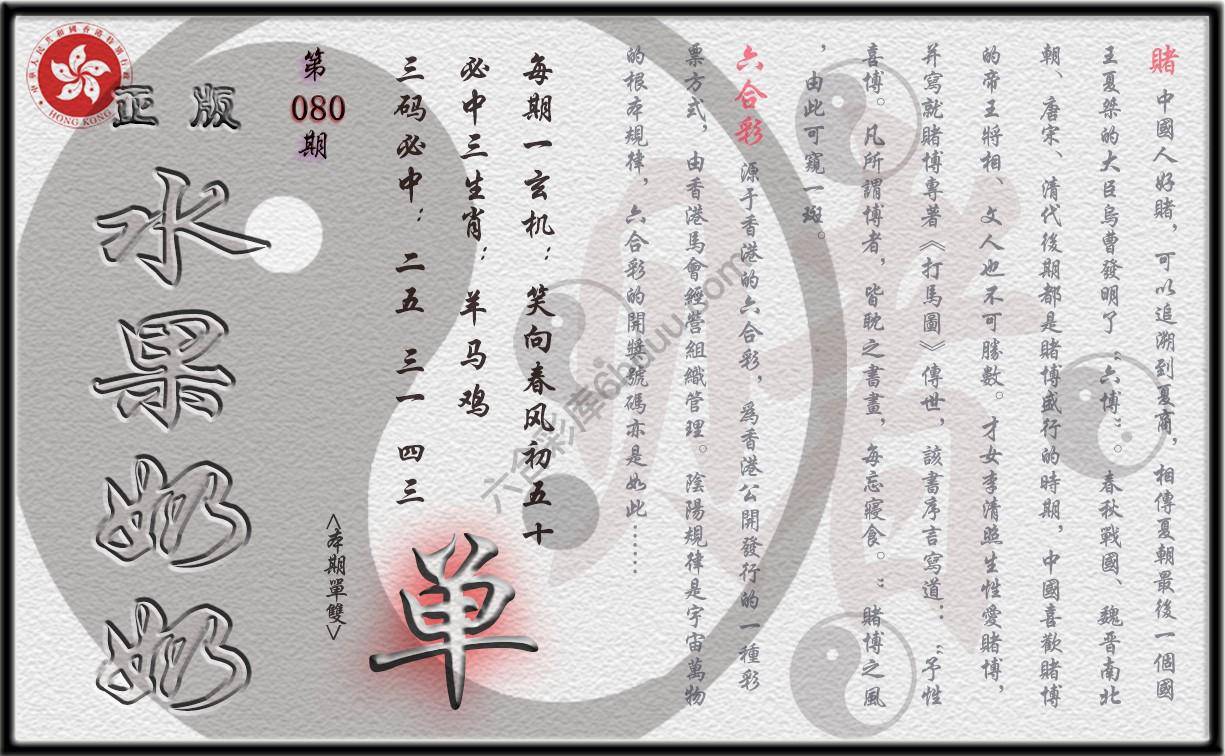 賭 中國人好賭，可以追溯到夏商，相傳夏朝最後一個國
王夏桀的大臣烏曹發明了“六博”。春秋戰國、魏晋南北
朝、唐宋、清代後期都是賭博盛行的時期，中國喜歡賭博
的帝王將相、文人也不可勝數。才女李清照生性愛賭博，
并寫就賭博專著《打馬圖》傳世，該書序言寫道：“予性
喜博。凡所謂博者，皆耽之書畫，每忘寢食。”賭博之風
，由此可窺一斑。
六合彩 源于香港的六合彩，爲香港公開發行的一種彩
票方式，由香港馬會經營組織管理。陰陽規律是宇宙萬物
的根本規律，六合彩的開獎號碼亦是如此……
每期一玄机：笑向春风初五十
必中三生肖：羊马鸡
三码必中：二五 三一 四三
单
<本期單雙>
第
080
期
正版
水果奶奶
中華人民共和國香港特別行政區
HONG KONG
六合彩库6huuu.com